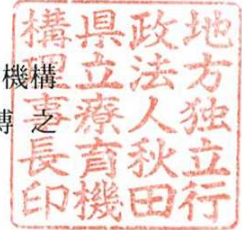 機構
之
地方独立行
政法人秋田
県立療育機
構理事長印